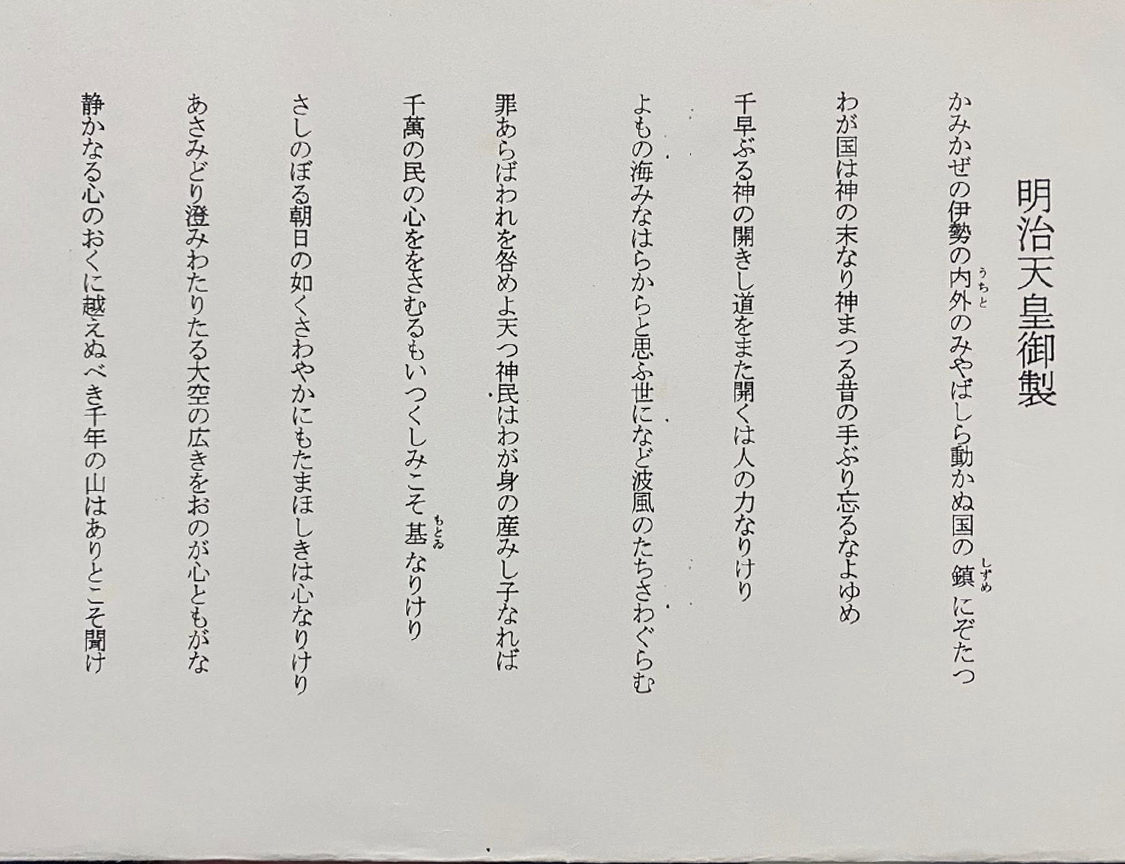 明治天皇御製
かみかぜの伊勢の内外のみやばしら動かぬ国の鎮にぞたつ
うちと
しずめ
わが国は神の末なり神まつる昔の手ぶり忘るなよゆめ
千早ぶる神の開きし道をまた開くは人の力なりけり
よもの海みなはらからと思ふ世になど波風のたちさわぐらむ
罪あらばわれを咎めよ天つ神民はわが身の産みし子なれば
千萬の民の心ををさむるもいつくしみこそ基なりけり
もとゐ
さしのぼる朝日の如くさわやかにもたまほしきは心なりけり
あさみどり澄みわたりたる大空の広きをおのが心ともがな
静かなる心のおくに越えぬべき千年の山はありとこそ聞け